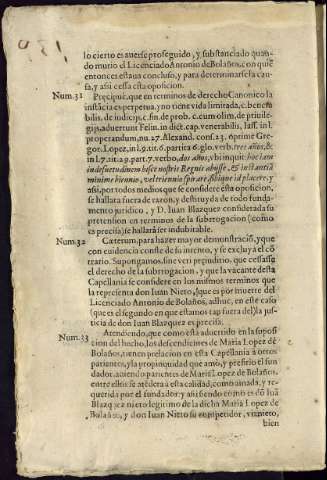 lo cierto es auerse proseguido, y substanciado quan-
do murio el Licenciado Antonio de Bolaños, con que
entonces estaua concluso, y para determinarse la cau-
sa, y assi cessa esta oposicion.
Num. 31 Præcipuè, que en terminos de derecho Canonico la
instãcia es perpetua, y no tiene vida limitada, c. vene-
rabilis, de iudicijs, c. fin. de prob. c. cum olim, de priuile-
gijs, aduertunt Felin. in dict. cap. venerabilis, Iass. in l.
properandum, nu. 27. Alexand. cons. 23. oprime Gre-
gor. Lopez, in l. 9. tit. 6. partita 6. glo. verb. tres años, &
in l. 7. tit. 29. part. 7. verbo, dos años, vbi inquit: hoc iam
in desuetudinem esse nostris Regnis abijsse, & instantia
minime biennio, vel triennio spirare, sed que id placere, y
assi, por todos medios que se considere esta oposicion,
se hallara fuera de razon, y destruyda de todo funda-
mento juridico, y D. Iuan Blazquez considerada su
pretension en terminos de la subrrogacion (como
es precisa) se hallarà ser indubitable.
Num. 32 Cæterum, para hazer mayor demonstracio, y que
con euidencia conste de su intento, y se excluya el cõ-
trario. Supongamos, sine veri prejudizio, que cessasse
el derecho de la subrrogacion, y que la vacante desta
Capellania se considere en los mismos terminos que
la representa don Iuan Nieto, (que es por muerte del
Licenciado Antonio de Bolaños, adhuc, en este caso
(que es el segundo en que estamos tap fuera del) la jus-
ticia de don Iuan Blazquez es precisa.
Num. 33 Atendiendo, que como esta aduertido en la suposi-
cion del hecho, los descendientes de Maria Lopez de
Bolaños, tienen prelacion en esta Capellania à otros
parientes, y la propinquidad que amò, y prefirio el fun-
dador, auiendo parientes de Maria Lopez de Bolaños,
entre ellos se atẽdera à esta calidad, como amada, y re-
querida por el fundador, y assi siendo como es dõ Iuã
Blazqez nieto legitimo de la dicha Maria Lopez de
Bolaños, y don Iuan Nieto su competidor, viznieto,
bien